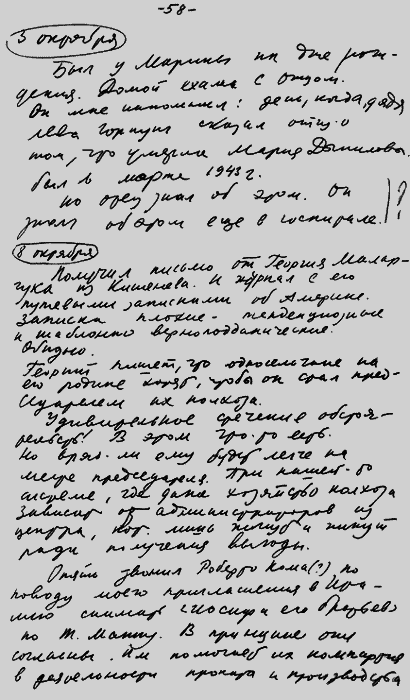 -58-
5 октября
Был у Марины на дне рож-
дения. Домой ехала с отцом.
Он мне напомнил: день, когда дядя
лева горнунг сказал отцу о
том, что умерла Мария Даниловна.
был в марте 1943 г.
но отец знал об этом. Он
знал об этом еще в госпитале. !?
8 октября
Получил письмо от Георгия Малар-
чука из Кишенева. И журнал с его
путевыми записками об Америке.
Записки плохие - тенденциозные
и шаблонно верноподданические.
Обидно.
Георгий пишет, что односельчане на
его родине хотят, чтобы он стал пред-
седателем их колхоза.
Удивительное стечение обстоя-
тельств! В этом что-то есть.
Но вряд-ли ему будет легче на
месте председателя. При нашей-то
системе, где даже хозяйство колхоза
зависит от администраторов из
центра, кот. лишь
ради получения выгоды.
Опять звонил Роберто Кома(?) по
поводу моего приглашения в Ита-
лию снимать "Иосифа и его братьев"
по Т. Манну. В принципе они
согласны. Им помогает их компартия
в деятельности проката и производства